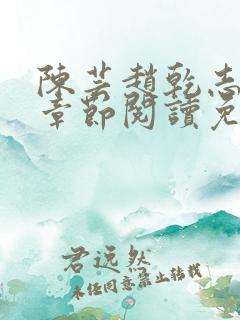 陳芸趙乾志
章節閱讀免
君远然
未经同意禁止转载